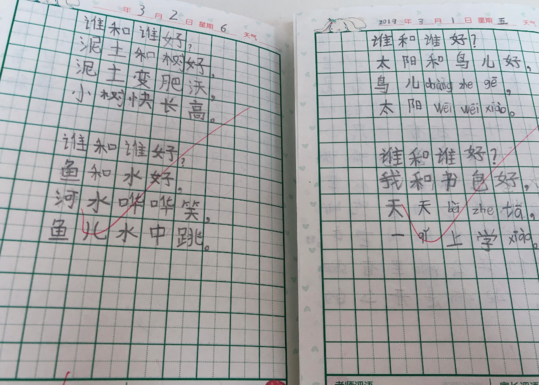 年 3 月 2 日 星期 6 天气
谁和谁好?
泥土和树好,
泥土变肥沃,
小树快长高。
谁和谁好?
鱼和水好。
河水哗哗笑,
鱼儿水中跳。
2019 年 3 月 1 日 星期 五 天气
谁和谁好?
太阳和鸟儿好,
鸟儿chàng zhe gē,
太阳wēi wēi xiào。
谁和谁好?
我和书包好,
天天 zhe tā,
一 上学 xiào。
老师评语
家长评语